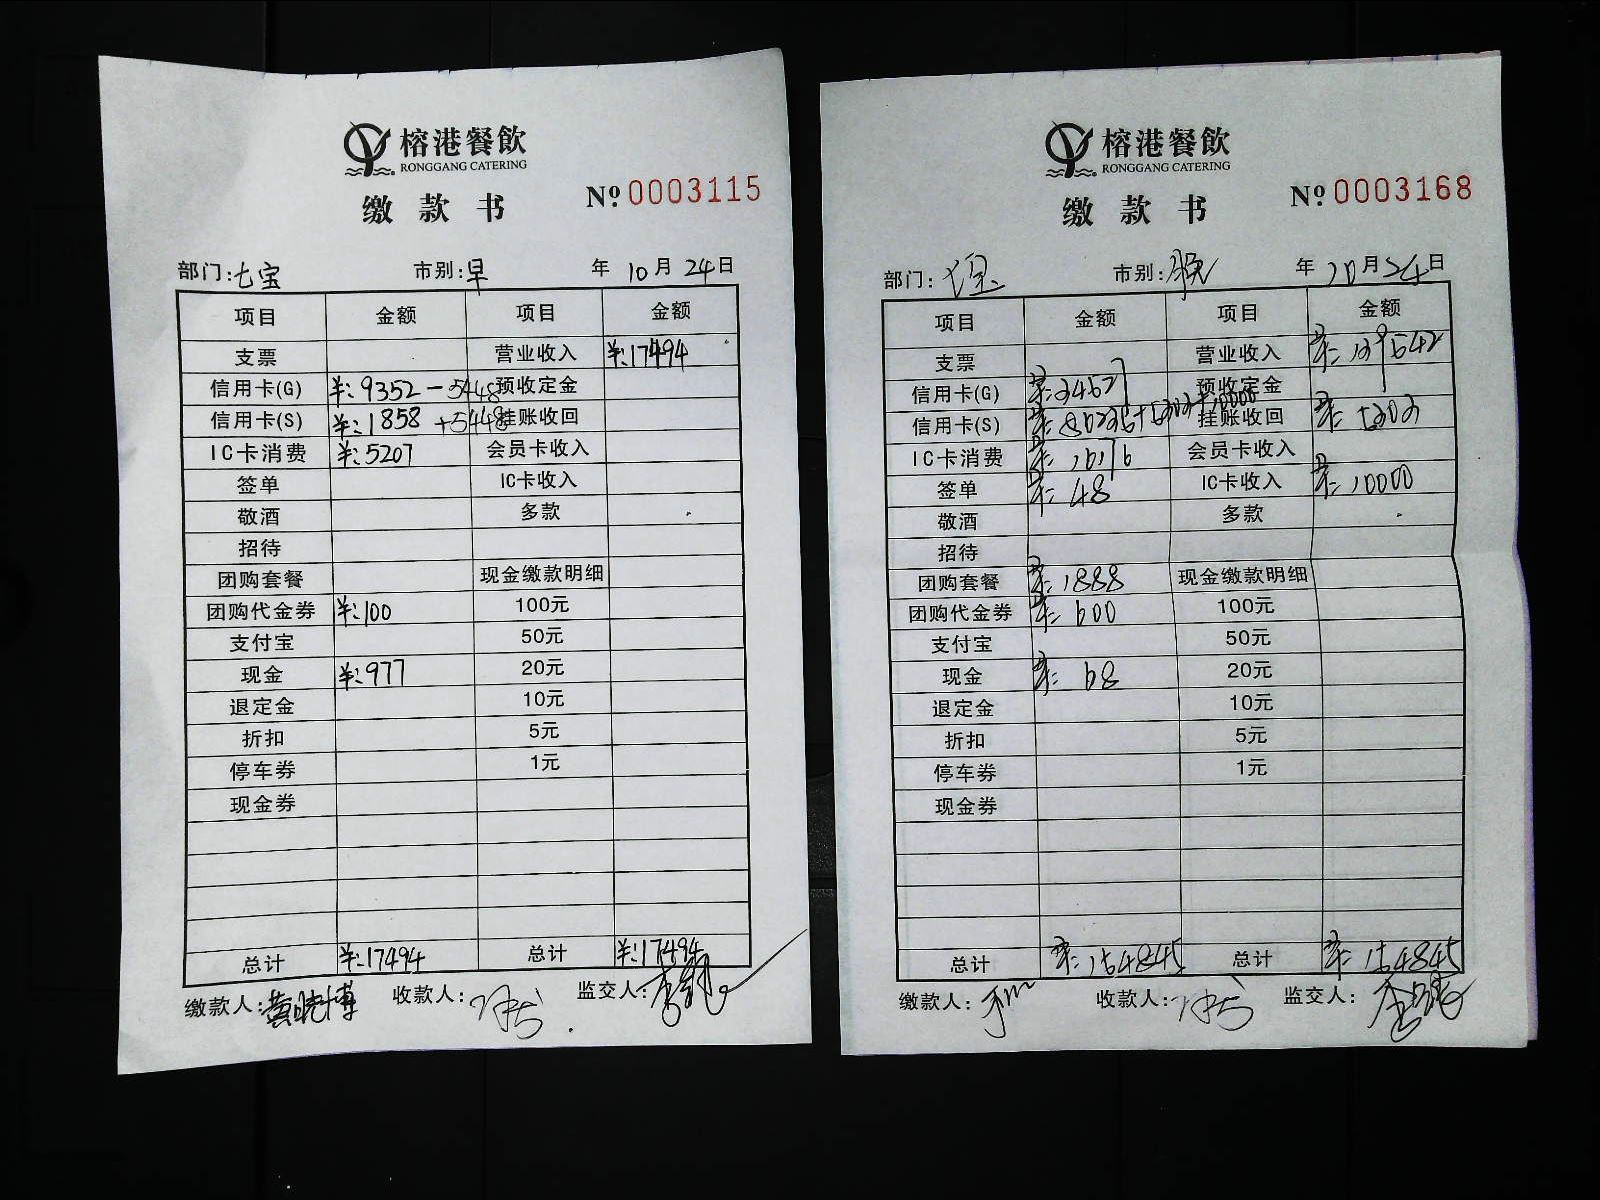 榕港餐飲
RONGGANG CATERING
缴款书 No 0003115
部门:七宝 市别:早 年 10月 24日
项目 金额 项目 金额
支票 营业收入 ¥:17494
信用卡(G) ¥:9352-5448 预收定金
信用卡(S) ¥:1858+5448 挂账收回
IC卡消费 ¥:5207 会员卡收入
签单 IC卡收入
敬酒 多款
招待
团购套餐 现金缴款明细
团购代金券 ¥:100 100元
支付宝 50元
现金 ¥:977 20元
退定金 10元
折扣 5元
停车券 1元
现金券
总计 ¥:17494 总计 ¥:17494
缴款人:黄晓博 收款人: 监交人:
榕港餐飲
RONGGANG CATERING
缴款书 No 0003168
部门:七宝 市别:晚 年 10月24日
项目 金额 项目 金额
支票 营业收入 ¥:139542
信用卡(G) ¥:34527 预收定金
信用卡(S) ¥:86235+5303+10000 挂账收回 ¥:5303
IC卡消费 ¥:16176 会员卡收入
签单 ¥:48 IC卡收入 ¥:10000
敬酒 多款
招待
团购套餐 ¥:1888 现金缴款明细
团购代金券 ¥:600 100元
支付宝 50元
现金 ¥:68 20元
退定金 10元
折扣 5元
停车券 1元
现金券
总计 ¥:154845 总计 ¥:154845
缴款人: 收款人: 监交人: